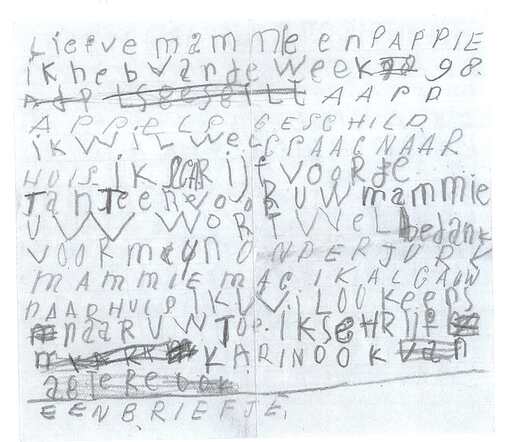 Liefve mammie en PAPPIE
ik heb vande week 98.
AAPD
APPIELS GESCHILD
ik WIL WeL GRAAG NAAR
HUIS ik SCHRijf voor de
TanTe en voor UW mammie
U WORT WeL bedank
voor meyn ONDERJURK
MAMMIE MAG IK ALGAUW
NAARHUIS IK WIL OOK eens
naaR UW Toe. IK SCHRIJF
KARIN OOK van
EENBRIEFJE.